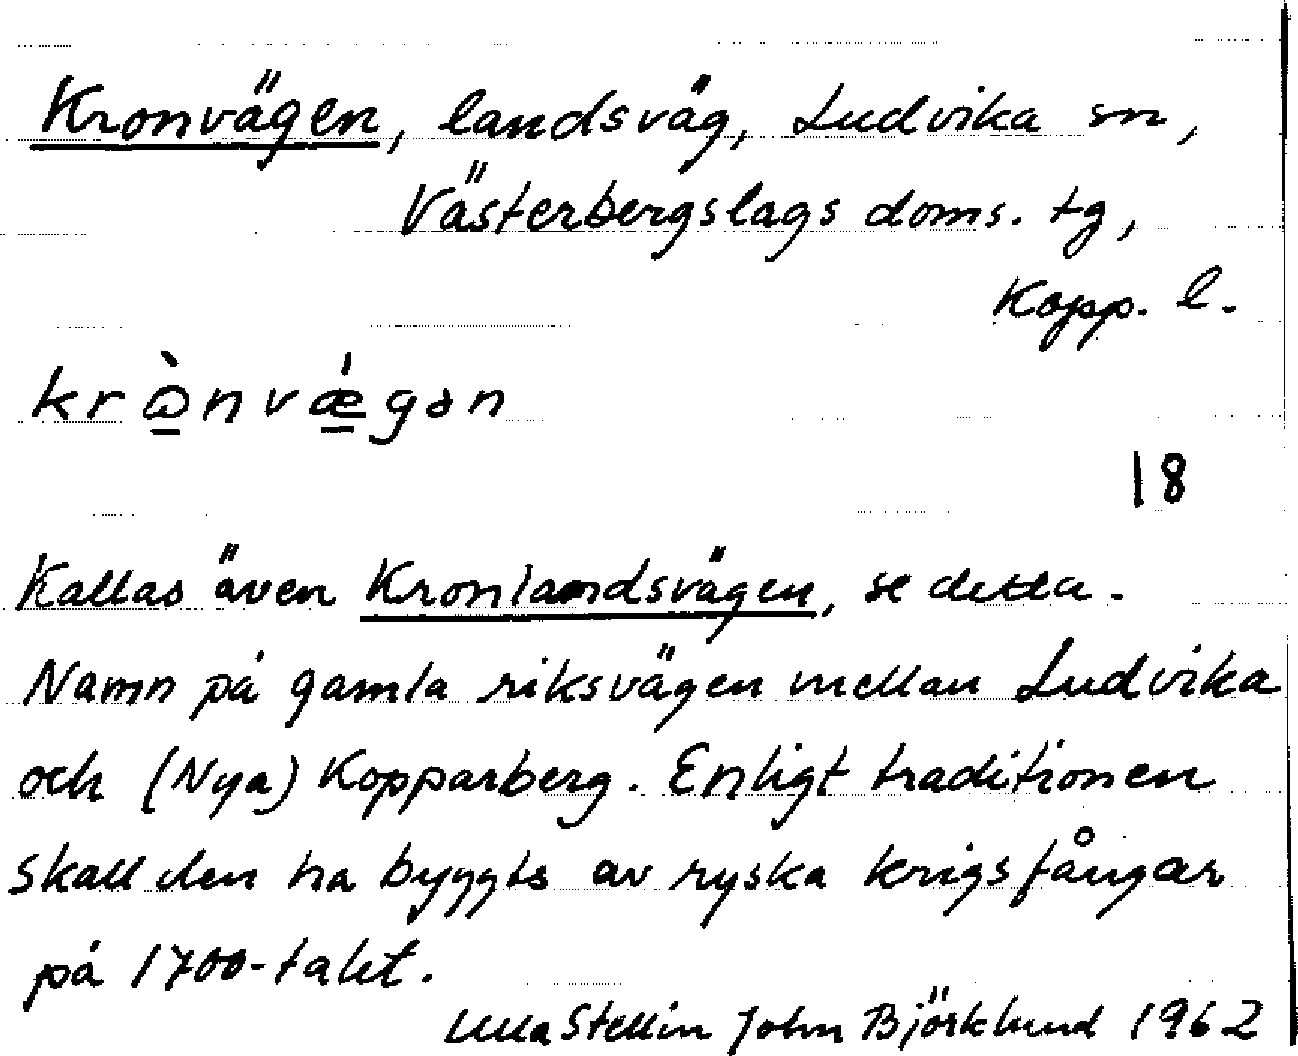 Kronvägen, landsväg, Ludvika sn,
Västerbergslags doms. tg,
Kopp. l.
krὼnvǽgən
18
Kallas även Kronlandsvägen, se detta.
Namn på gamla riksvägen mellan Ludvika
och (Nya) Kopparberg. Enligt traditionen
skall den ha byggts av ryska krigsfångar
på 1700-talet.
Ulla Stellin John Björklund 1962